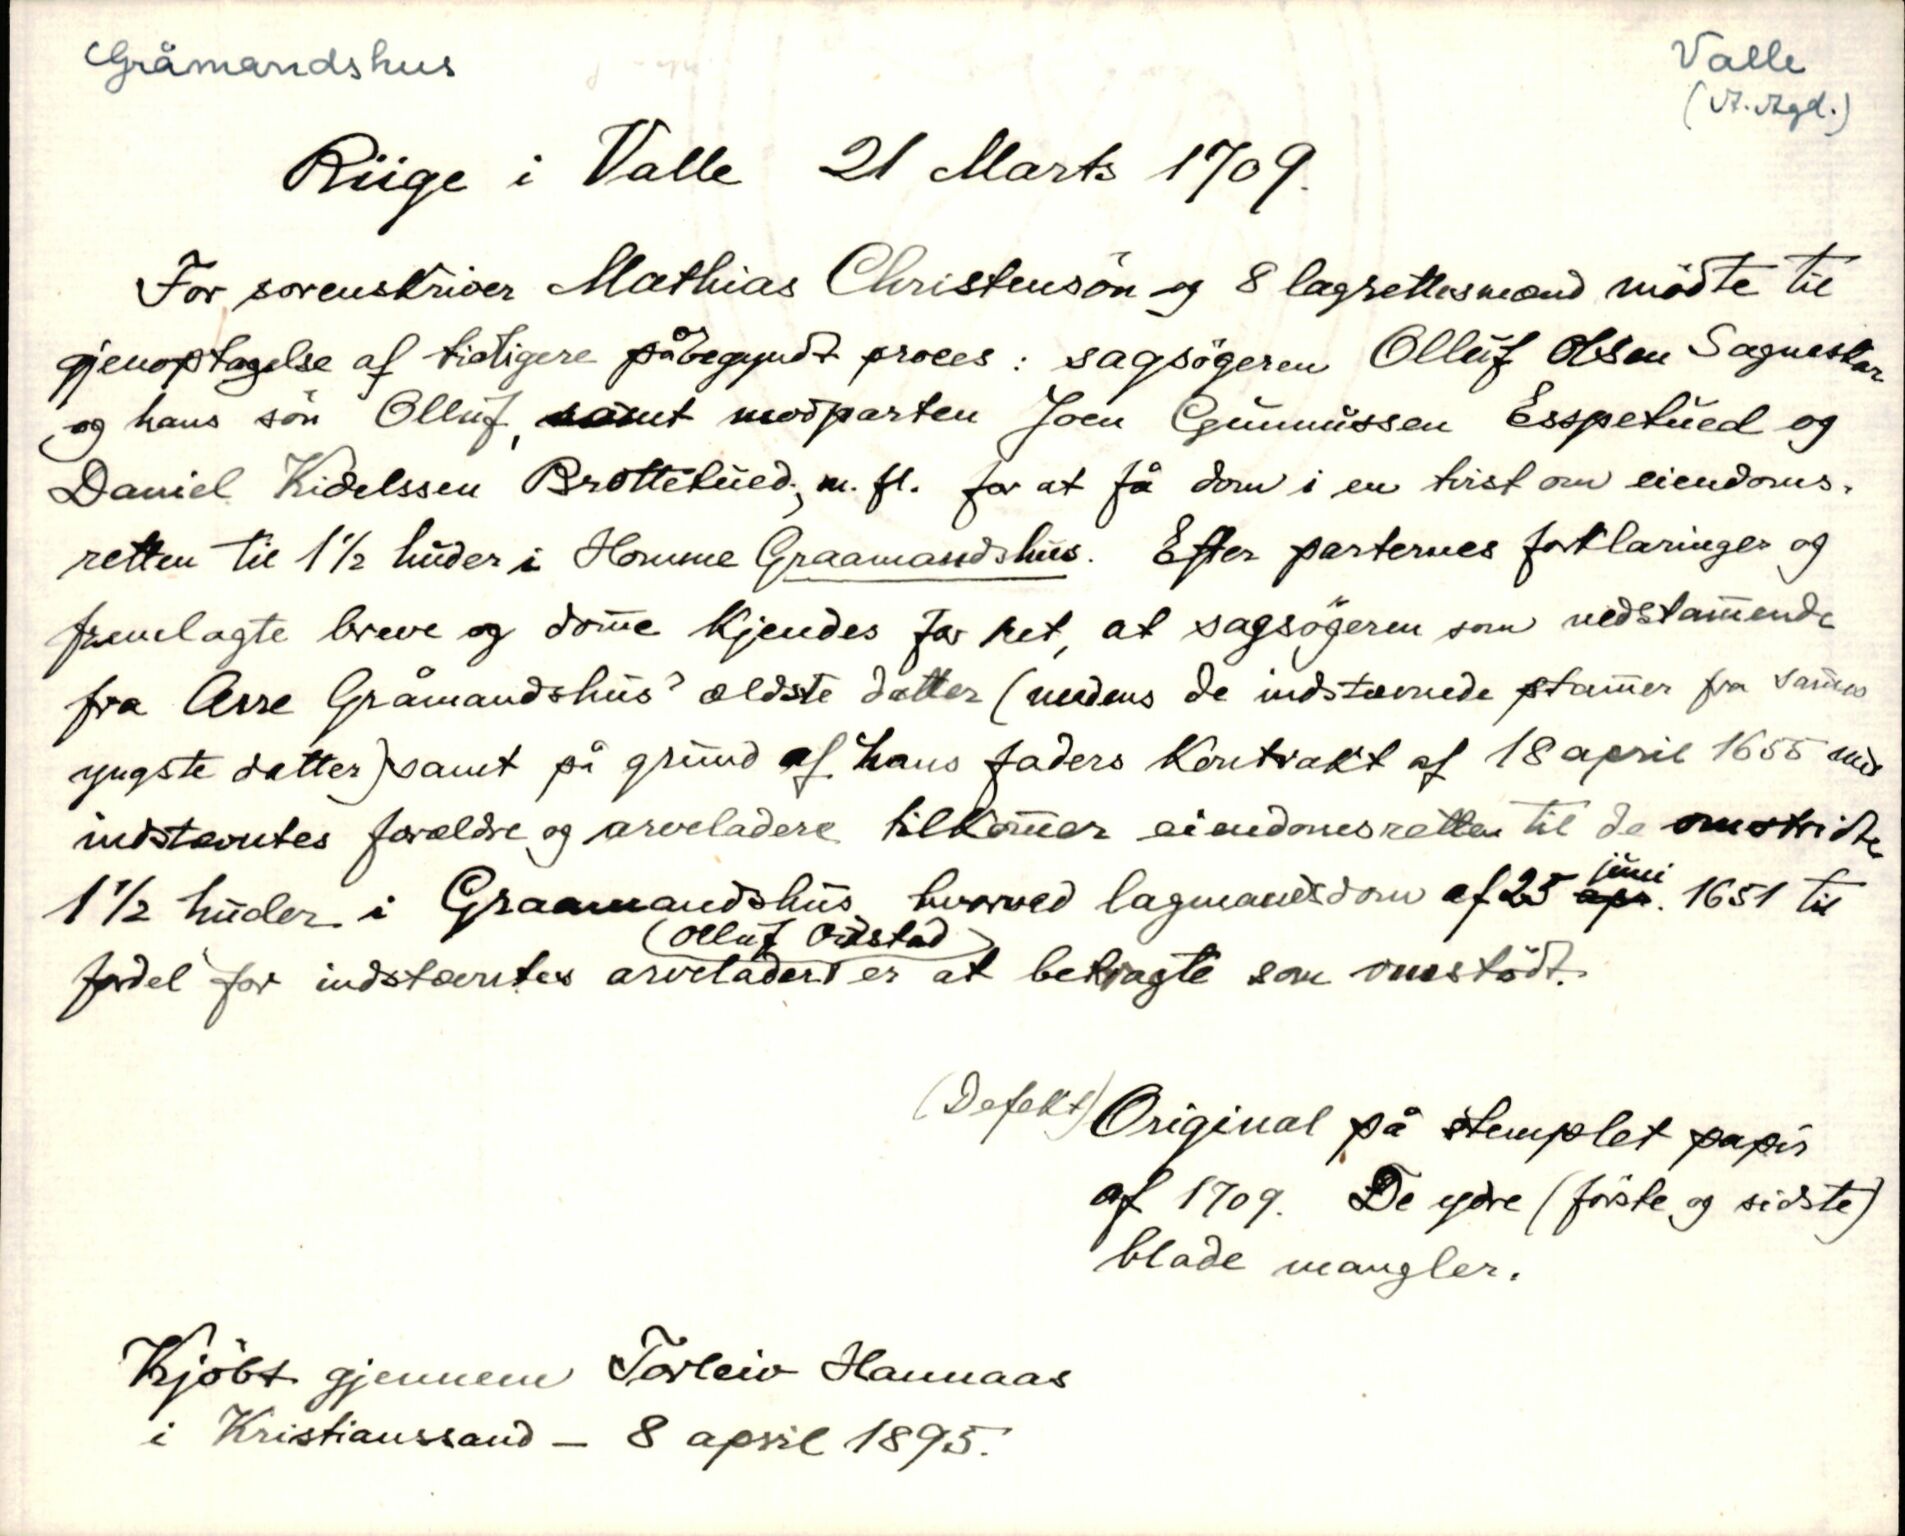 Gråmandshus
Valle
(A. Agd.)
Riige i Valle 21 Marts 1709.
For sorenskriver Mathias Christensön og 8 lagrettesmænd mödte til
gjenoptagelse af tidligere påbegyndt proces: sagsögeren Olluf Olsen Sagneskar
og hans sön Olluf, samt modparten Joen Gunnussen Esspetued og
Daniel Kidelssen Brottetued, m. fl. for at få dom i en tvist om eiendoms-
retten til 1 1/2 huder i Homme Graamandshus. Efter parternes forklaringer og
fremlagte breve og dom̄e kjendes for ret, at sagsögeren som nedstam̄ende
fra Asre Gråmandshus' ældste datter (medens de indstævnede stam̄er fra sam̄es
yngste datter) samt på grund af hans faders kontrakt af 18 april 1655 med
indstævntes forældre og arveladere tilkom̄er eiendomsretten til de omstridte
1 1/2 huder i Graamandshus hvorved lagmandsdom af 25 juni 1651 til
(Olluf Odstad)
fordel for indstævntes arveladers er at betragte som omstödt.
(Defekt) Original på stemplet papir
af 1709. De ydre (förste og sidste)
blade mangler.
Kjöbt gjennem Torleiv Hannaas
i Kristianssand – 8 april 1895.